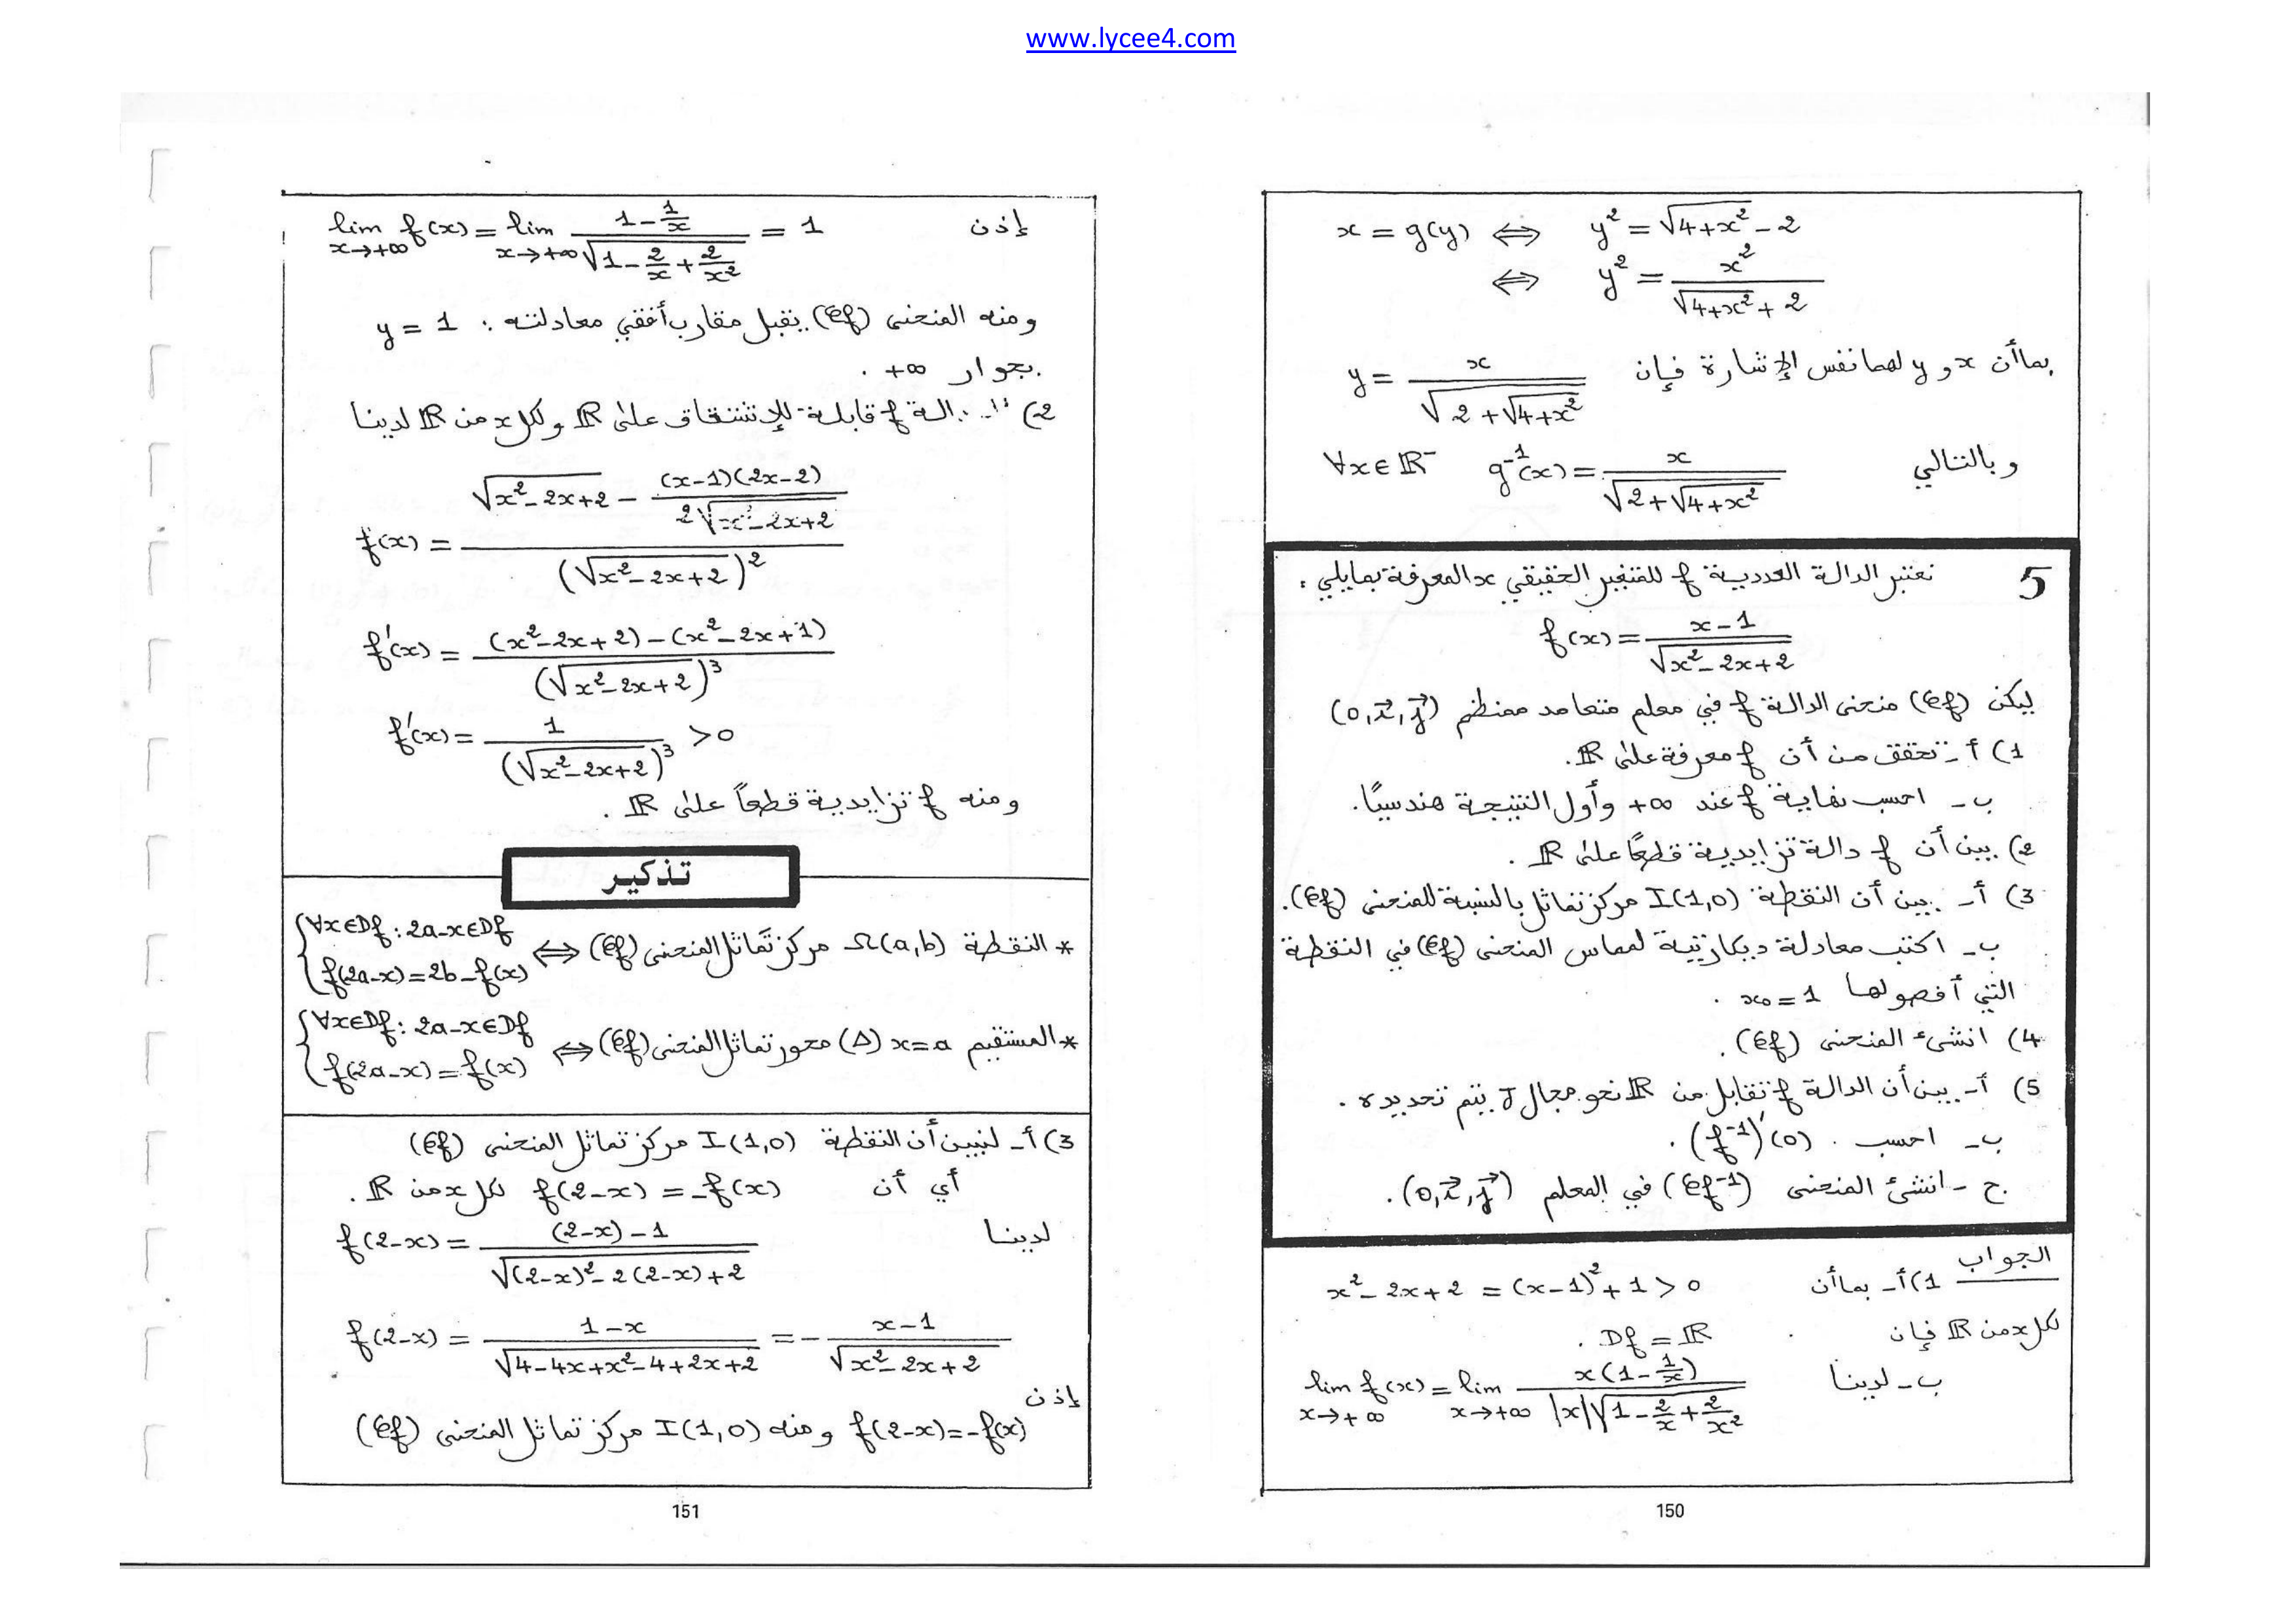 www.lycee4.com
x = g(y) ⇔ y² = √(4+x²) - 2
⇔ y² = x² / (√(4+x²) + 2)
بما أن x و y لهما نفس الإشارة فإن y = x / √(2 + √(4+x²))
وبالتالي ∀x∈ℝ⁻ g⁻¹(x) = x / √(2 + √(4+x²))
5 نعتبر الدالة العددية f للمتغير الحقيقي x المعرفة بمايلي :
f(x) = (x-1) / √(x²-2x+2)
ليكن (𝒞f) منحنى الدالة f في معلم متعامد ممنظم (o, i⃗, j⃗)
1) أ - تحقق من أن f معرفة على ℝ.
ب - احسب نهاية f عند +∞ وأول النتيجة هندسيًا.
2) بين أن f دالة تزايدية قطعًا على ℝ .
3) أ - بين أن النقطة I(1,0) مركز تماثل بالنسبة للمنحنى (𝒞f).
ب - اكتب معادلة ديكارتية لمماس المنحنى (𝒞f) في النقطة
التي أفصولها x₀ = 1 .
4) انشىء المنحنى (𝒞f).
5) أ - بين أن الدالة f تقابل من ℝ نحو مجال J يتم تحديده .
ب - احسب . (f⁻¹)'(0) .
ج - انشئ المنحنى (𝒞f⁻¹) في المعلم (o, i⃗, j⃗) .
الجواب
1) أ - بما أن x²-2x+2 = (x-1)²+1 > 0
لكل x من ℝ فإن Df = ℝ .
ب - لدينا lim_{x→+∞} f(x) = lim_{x→+∞} x(1-1/x) / (|x|√(1-2/x+2/x²))
150
إذن lim_{x→+∞} f(x) = lim_{x→+∞} (1-1/x) / √(1-2/x+2/x²) = 1
ومنه المنحنى (𝒞f) يقبل مقارب أفقي معادلته : y = 1
بجوار +∞ .
2) الدالة f قابلة للإشتقاق على ℝ ولكل x من ℝ لدينا
f'(x) = (√(x²-2x+2) - (x-1)(2x-2) / (2√(x²-2x+2))) / (√(x²-2x+2))²
f'(x) = ((x²-2x+2)-(x²-2x+1)) / (√(x²-2x+2))³
f'(x) = 1 / (√(x²-2x+2))³ > 0
ومنه f تزايدية قطعاً على ℝ .
تذكير
* النقطة Ω(a,b) مركز تماثل المنحنى (𝒞f) ⇔ { ∀x∈Df : 2a-x∈Df
f(2a-x) = 2b-f(x)
* المستقيم x=a (Δ) محور تماثل المنحنى (𝒞f) ⇔ { ∀x∈Df : 2a-x∈Df
f(2a-x) = f(x)
3) أ - لنبين أن النقطة I(1,0) مركز تماثل المنحنى (𝒞f)
أي أن f(2-x) = -f(x) لكل x من ℝ .
لدينا f(2-x) = ((2-x)-1) / √((2-x)²-2(2-x)+2)
f(2-x) = (1-x) / √(4-4x+x²-4+2x+2) = - (x-1) / √(x²-2x+2)
إذن
f(2-x) = -f(x) ومنه I(1,0) مركز تماثل المنحنى (𝒞f)
151